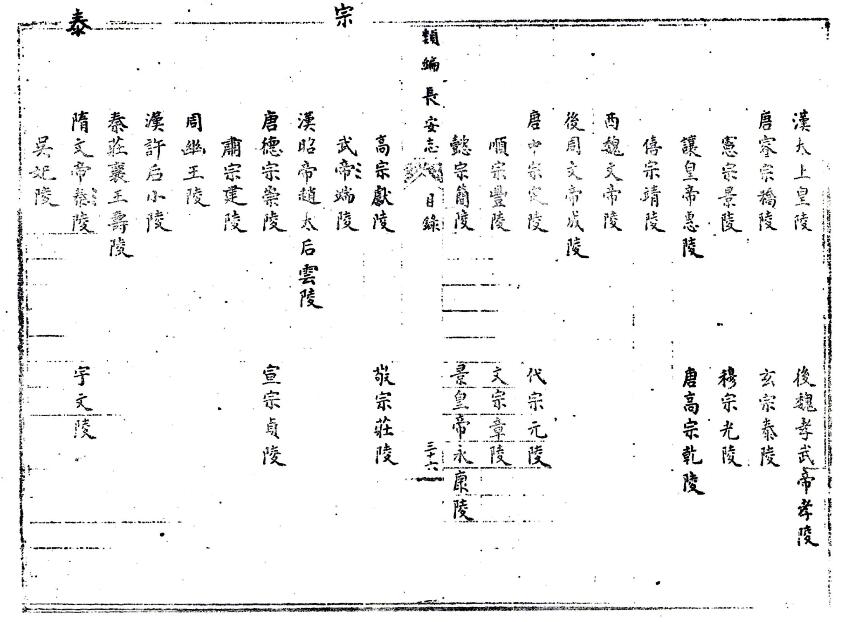 宗
泰
漢太上皇陵　後魏孝武帝孝陵
唐睿宗橋陵　玄宗泰陵
憲宗景陵　穆宗光陵
讓皇帝惠陵　唐高宗乾陵
僖宗靖陵
西魏文帝陵
後周文帝成陵
唐中宗定陵　代宗元陵
順宗豐陵　文宗章陵
懿宗簡陵　景皇帝永康陵
類編長安志　目錄　三十六
高宗獻陵　敬宗莊陵
武帝端陵
漢昭帝趙太后雲陵
唐德宗崇陵　宣宗貞陵
肅宗建陵
周幽王陵
漢許后小陵
秦莊襄王壽陵
隋文帝泰陵　宇文陵
吳妃陵